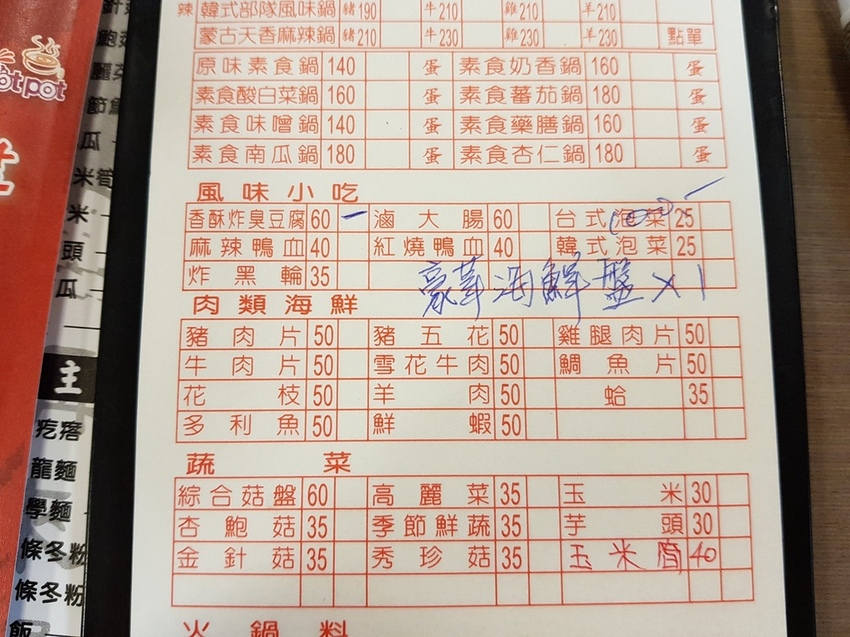 辣 韓式部隊風味鍋 豬190 牛210 雞210 羊210
蒙古天香麻辣鍋 豬210 牛230 雞230 羊230 點單
原味素食鍋 140 蛋 素食奶香鍋 160 蛋
素食酸白菜鍋 160 蛋 素食蕃茄鍋 180 蛋
素食味噌鍋 140 蛋 素食藥膳鍋 160 蛋
素食南瓜鍋 180 蛋 素食杏仁鍋 180 蛋
風味小吃
香酥炸臭豆腐 60 一 滷大腸 60 台式泡菜 25
麻辣鴨血 40 紅燒鴨血 40 韓式泡菜 25
炸黑輪 35
豪華海鮮盤 x 1
肉類海鮮
豬肉片 50 豬五花 50 雞腿肉片 50
牛肉片 50 雪花牛肉 50 鯛魚片 50
花枝 50 羊肉 50 蛤 35
多利魚 50 鮮蝦 50
蔬菜
綜合菇盤 60 高麗菜 35 玉米 30
杏鮑菇 35 季節鮮蔬 35 芋頭 30
金針菇 35 秀珍菇 35 玉米筍 40
火鍋料
otpot
節
瓜
米筍
米
頭
瓜
主
疙瘩
龍麵
學麵
條冬粉
條冬粉
飯